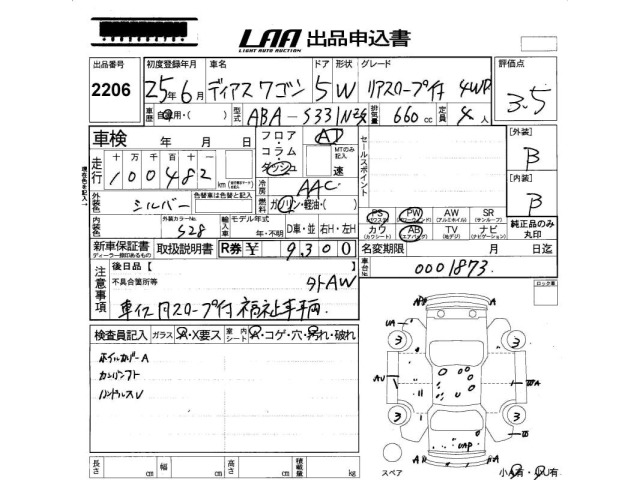 LAA 出品申込書
LIGHT AUTO AUCTION
出品番号 初度登録年月 車名 ドア 形状 グレード 評価点
2206 25年6月 ディアスワゴン 5 W リアスロープ付 4WD 3.5
車歴 自家用・( ) 型式 ABA-S331N改 排気量 660 cc 定員 4 人
車検 年 月 日 フロア・コラム・ダッシュ AT MTのみ記入 速 セールスポイント
[外装] B
[内装] B
走行 十 万 千 百 十 一
100482 km
冷房 AAC
外装色 シルバー 色替車は色替と記入 燃料 ガソリン・軽油・( )
内装色 外装カラーNo. S28 輸入車 モデル年式 年・不明 D車・並 右H・左H
PS PW AW SR
(パワステ) (パワーウィンドウ) (アルミホイル) (サンルーフ)
カワ AB TV ナビ
(カワシート) (エアバッグ) (地デジ) (ナビゲーション)
純正品のみ丸印
新車保証書 取扱説明書 R券 ¥ 9,300
ディーラー捺印あるもの
名変期限 月 日迄
車台No. 0001873
注意事項 後日品【
不具合箇所等 外AW
車イス用スロープ付 福祉車両
ロック車
検査員記入 ガラス A・X要ス 室内シート A・コゲ・穴・汚れ・破れ
ホイルカバーA
カンバンフト
ハンドルスU
長さ cm 幅 cm 高さ cm 積載量 kg
UA
3 3
AU
3 3
スペア 小A有・小U有